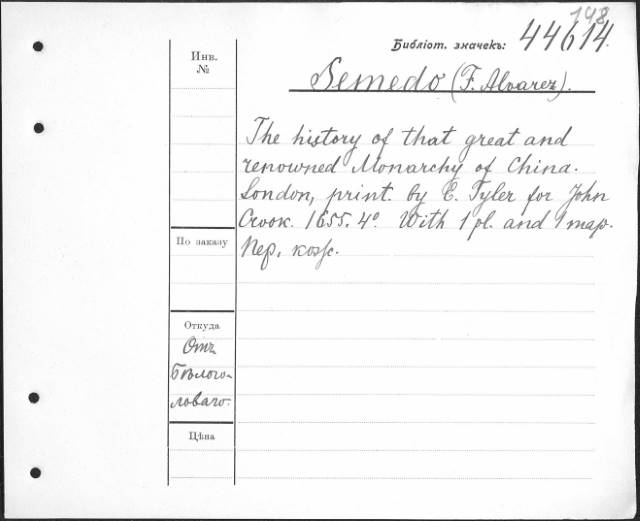 148
Библіот. значекъ: 44614.
Инв.
№
Semedo (F. Alvarez).
The history of that great and
renowned Monarchy of China.
London, print. by E. Tyler for John
Crook. 1655. 4º. With 1 pl. and 1 map.
Пер. кож.
По заказу
Откуда
Отъ
Бѣлого-
ловаго.
Цѣна